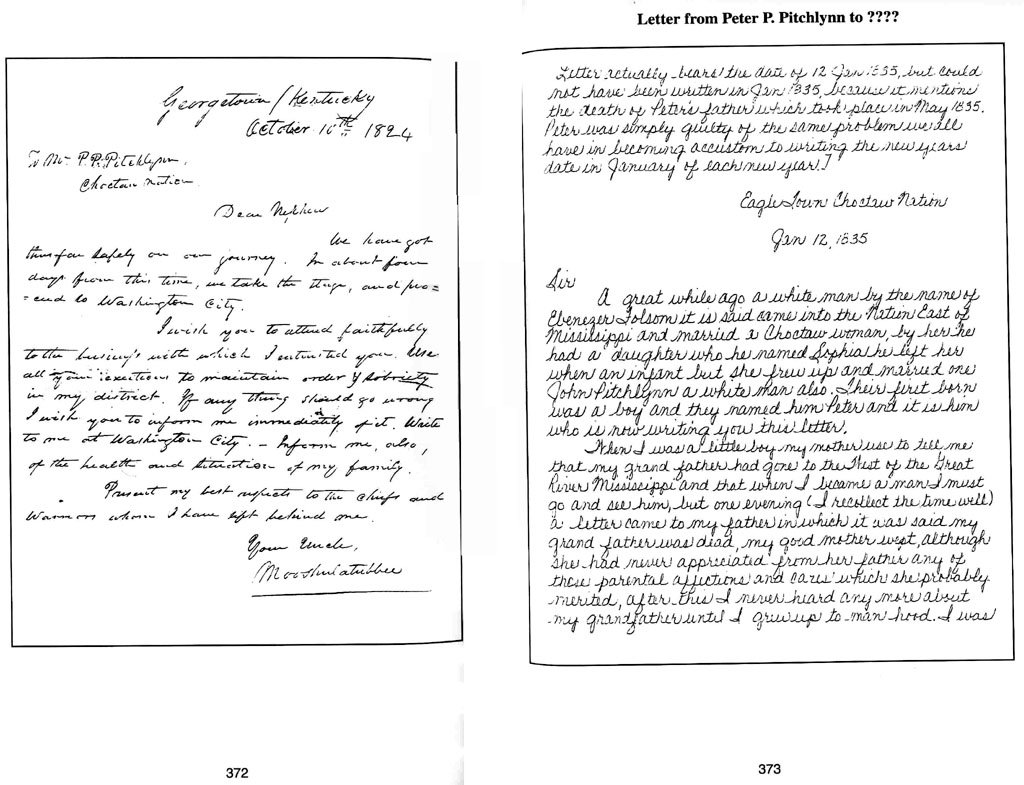 Georgetown / Kentucky
October 10th 1824
To Mr P. P. Pitchlynn,
Choctaw Nation
Dear Nephew
We have got
thus far safely on our journey. In about four
days from this time, we take the stage, and pro=
=ceed to Washington City.
I wish you to attend faithfully
to the busing's with which I entrusted you. Use
all your exections to maintain order & sobriety
in my district. If any thing should go wrong
I wish you to inform me immediately of it. Write
to me at Washington City. – Inform me, also,
of the health and situation of my family.
Present my best respects to the Chiefs and
Warriors whom I have left behind me.
Your Uncle,
Mooshulatubbee
372
Letter from Peter P. Pitchlynn to ????
Letter actually bears the date of 12 Jan 1835, but could
not have been written in Jan 1835, because it mentions
the death of Peter's father which took place in May 1835.
Peter was simply guilty of the same problem we all
have in becoming accustom to writing the new years
date in January of each new year.]
Eagle Town Choctaw Nation
Jan 12, 1835
Sir
A great while ago a white man by the name of
Ebenezer Folsom it is said came into the Nation East of
Mississippi and married a Choctaw woman, by her he
had a daughter who he named Sophia he left her
when an infant but she grew up and married one
John Pitchlynn a white man also. Their first born
was a boy and they named him Peter and it is him
who is now writing you this letter.
When I was a little boy my mother use to tell me
that my grand father had gone to the West of the Great
River Mississippi and that when I became a man I must
go and see him, but one evening (I recollect the time well)
a letter came to my father in which it was said my
grand father was dead, my good mother wept, although
she had never appreciated from her father any of
these parental affictions and cares which she probably
merited, after this I never heard any more about
my grandfather until I grew up to man hood. I was
373